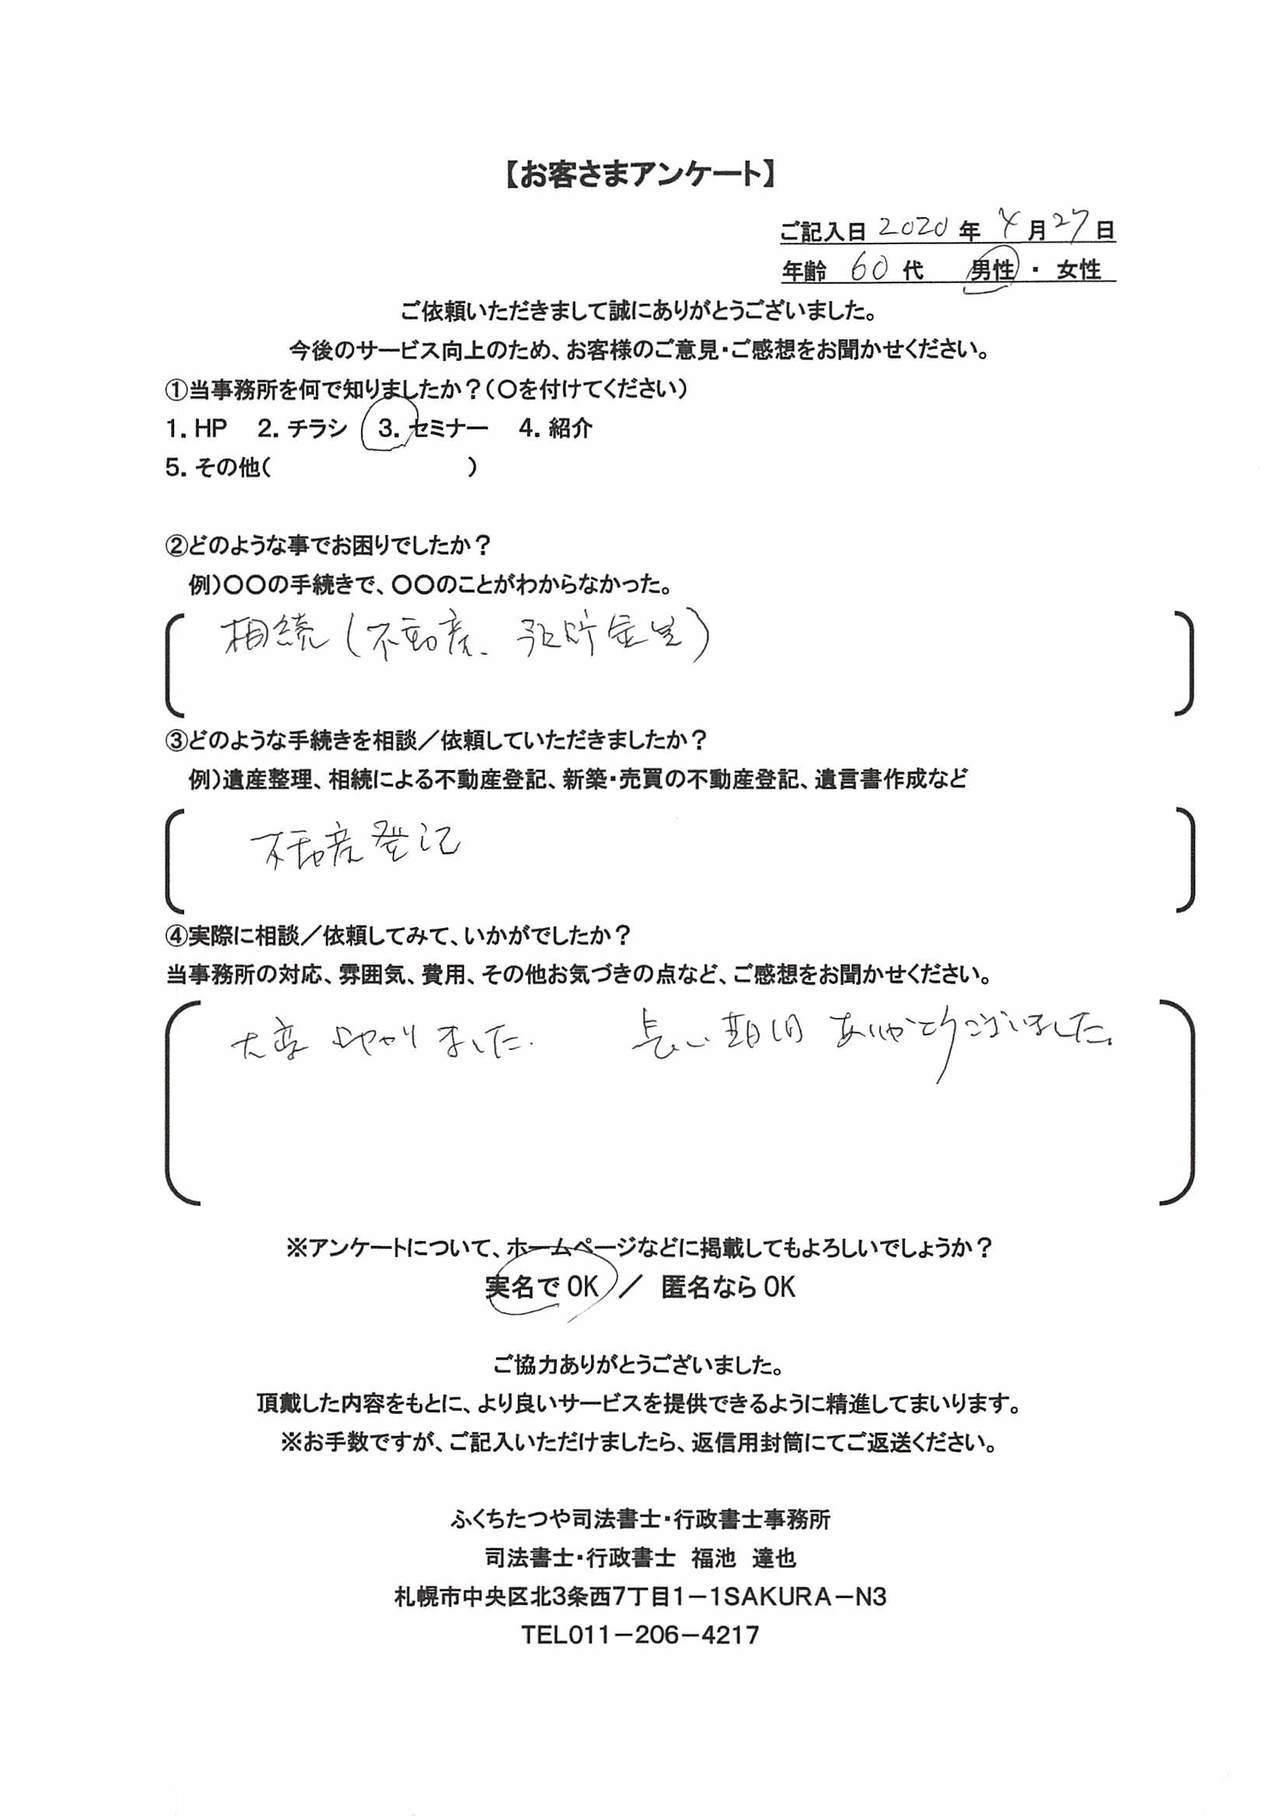 【お客さまアンケート】
ご記入日 2020 年 4 月 27 日
年齢 60 代 男性 ・ 女性
ご依頼いただきまして誠にありがとうございました。
今後のサービス向上のため、お客様のご意見・ご感想をお聞かせください。
①当事務所を何で知りましたか？(〇を付けてください)
1. HP 2. チラシ 3. セミナー 4. 紹介
5. その他( )
②どのような事でお困りでしたか？
例)〇〇の手続きで、〇〇のことがわからなかった。
相続(不動産、預貯金等)
③どのような手続きを相談／依頼していただきましたか？
例)遺産整理、相続による不動産登記、新築・売買の不動産登記、遺言書作成など
不動産登記
④実際に相談／依頼してみて、いかがでしたか？
当事務所の対応、雰囲気、費用、その他お気づきの点など、ご感想をお聞かせください。
大変 ました. 長い期間 ありがとうございました。
※アンケートについて、ホームページなどに掲載してもよろしいでしょうか？
実名で OK ／ 匿名なら OK
ご協力ありがとうございました。
頂戴した内容をもとに、より良いサービスを提供できるように精進してまいります。
※お手数ですが、ご記入いただけましたら、返信用封筒にてご返送ください。
ふくちたつや司法書士・行政書士事務所
司法書士・行政書士 福池 達也
札幌市中央区北3条西7丁目1－1SAKURA－N3
TEL011－206－4217